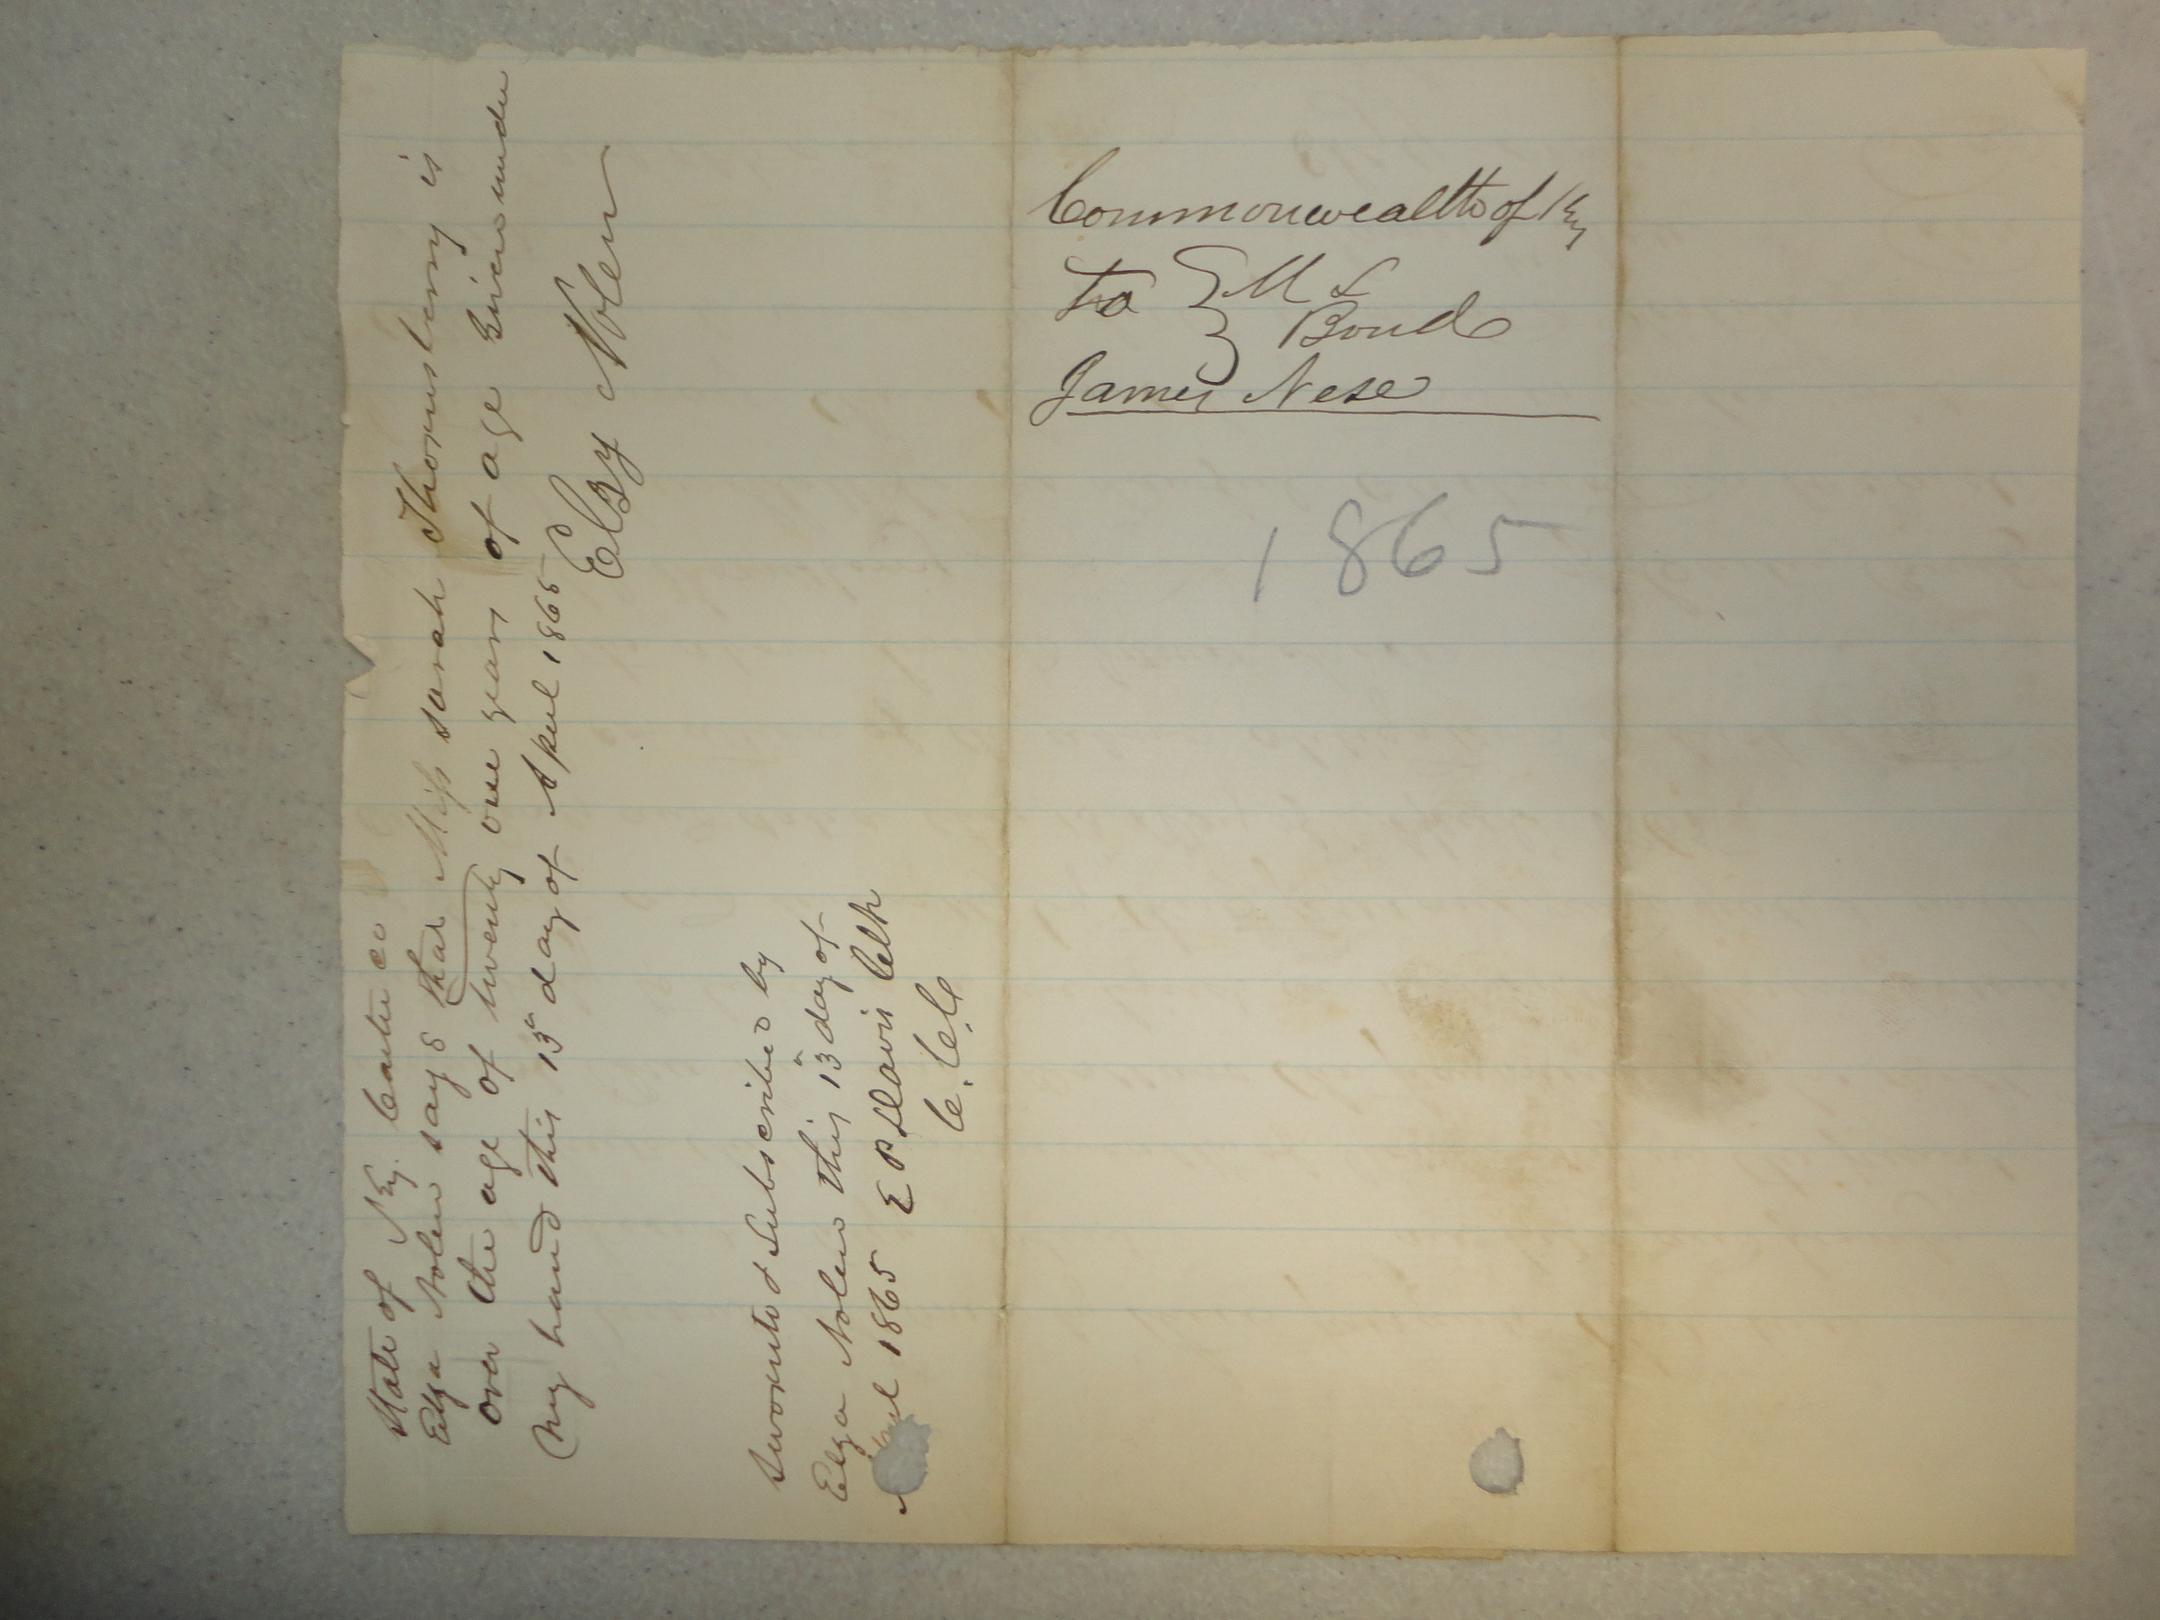 State of Ky. Carter co
Elza Nolen says that Miss sarah Thornsberry is
over the age of twenty one years of age Given under
my hand this 13th day of April 1865
Elzy Nolen
Sworn to & Subscribed by
Elza Nolen this 13th day of
April 1865 E P Davis Clk
C. C. C
Commonwealth of Ky
To M L
Bond
James Nese
1865